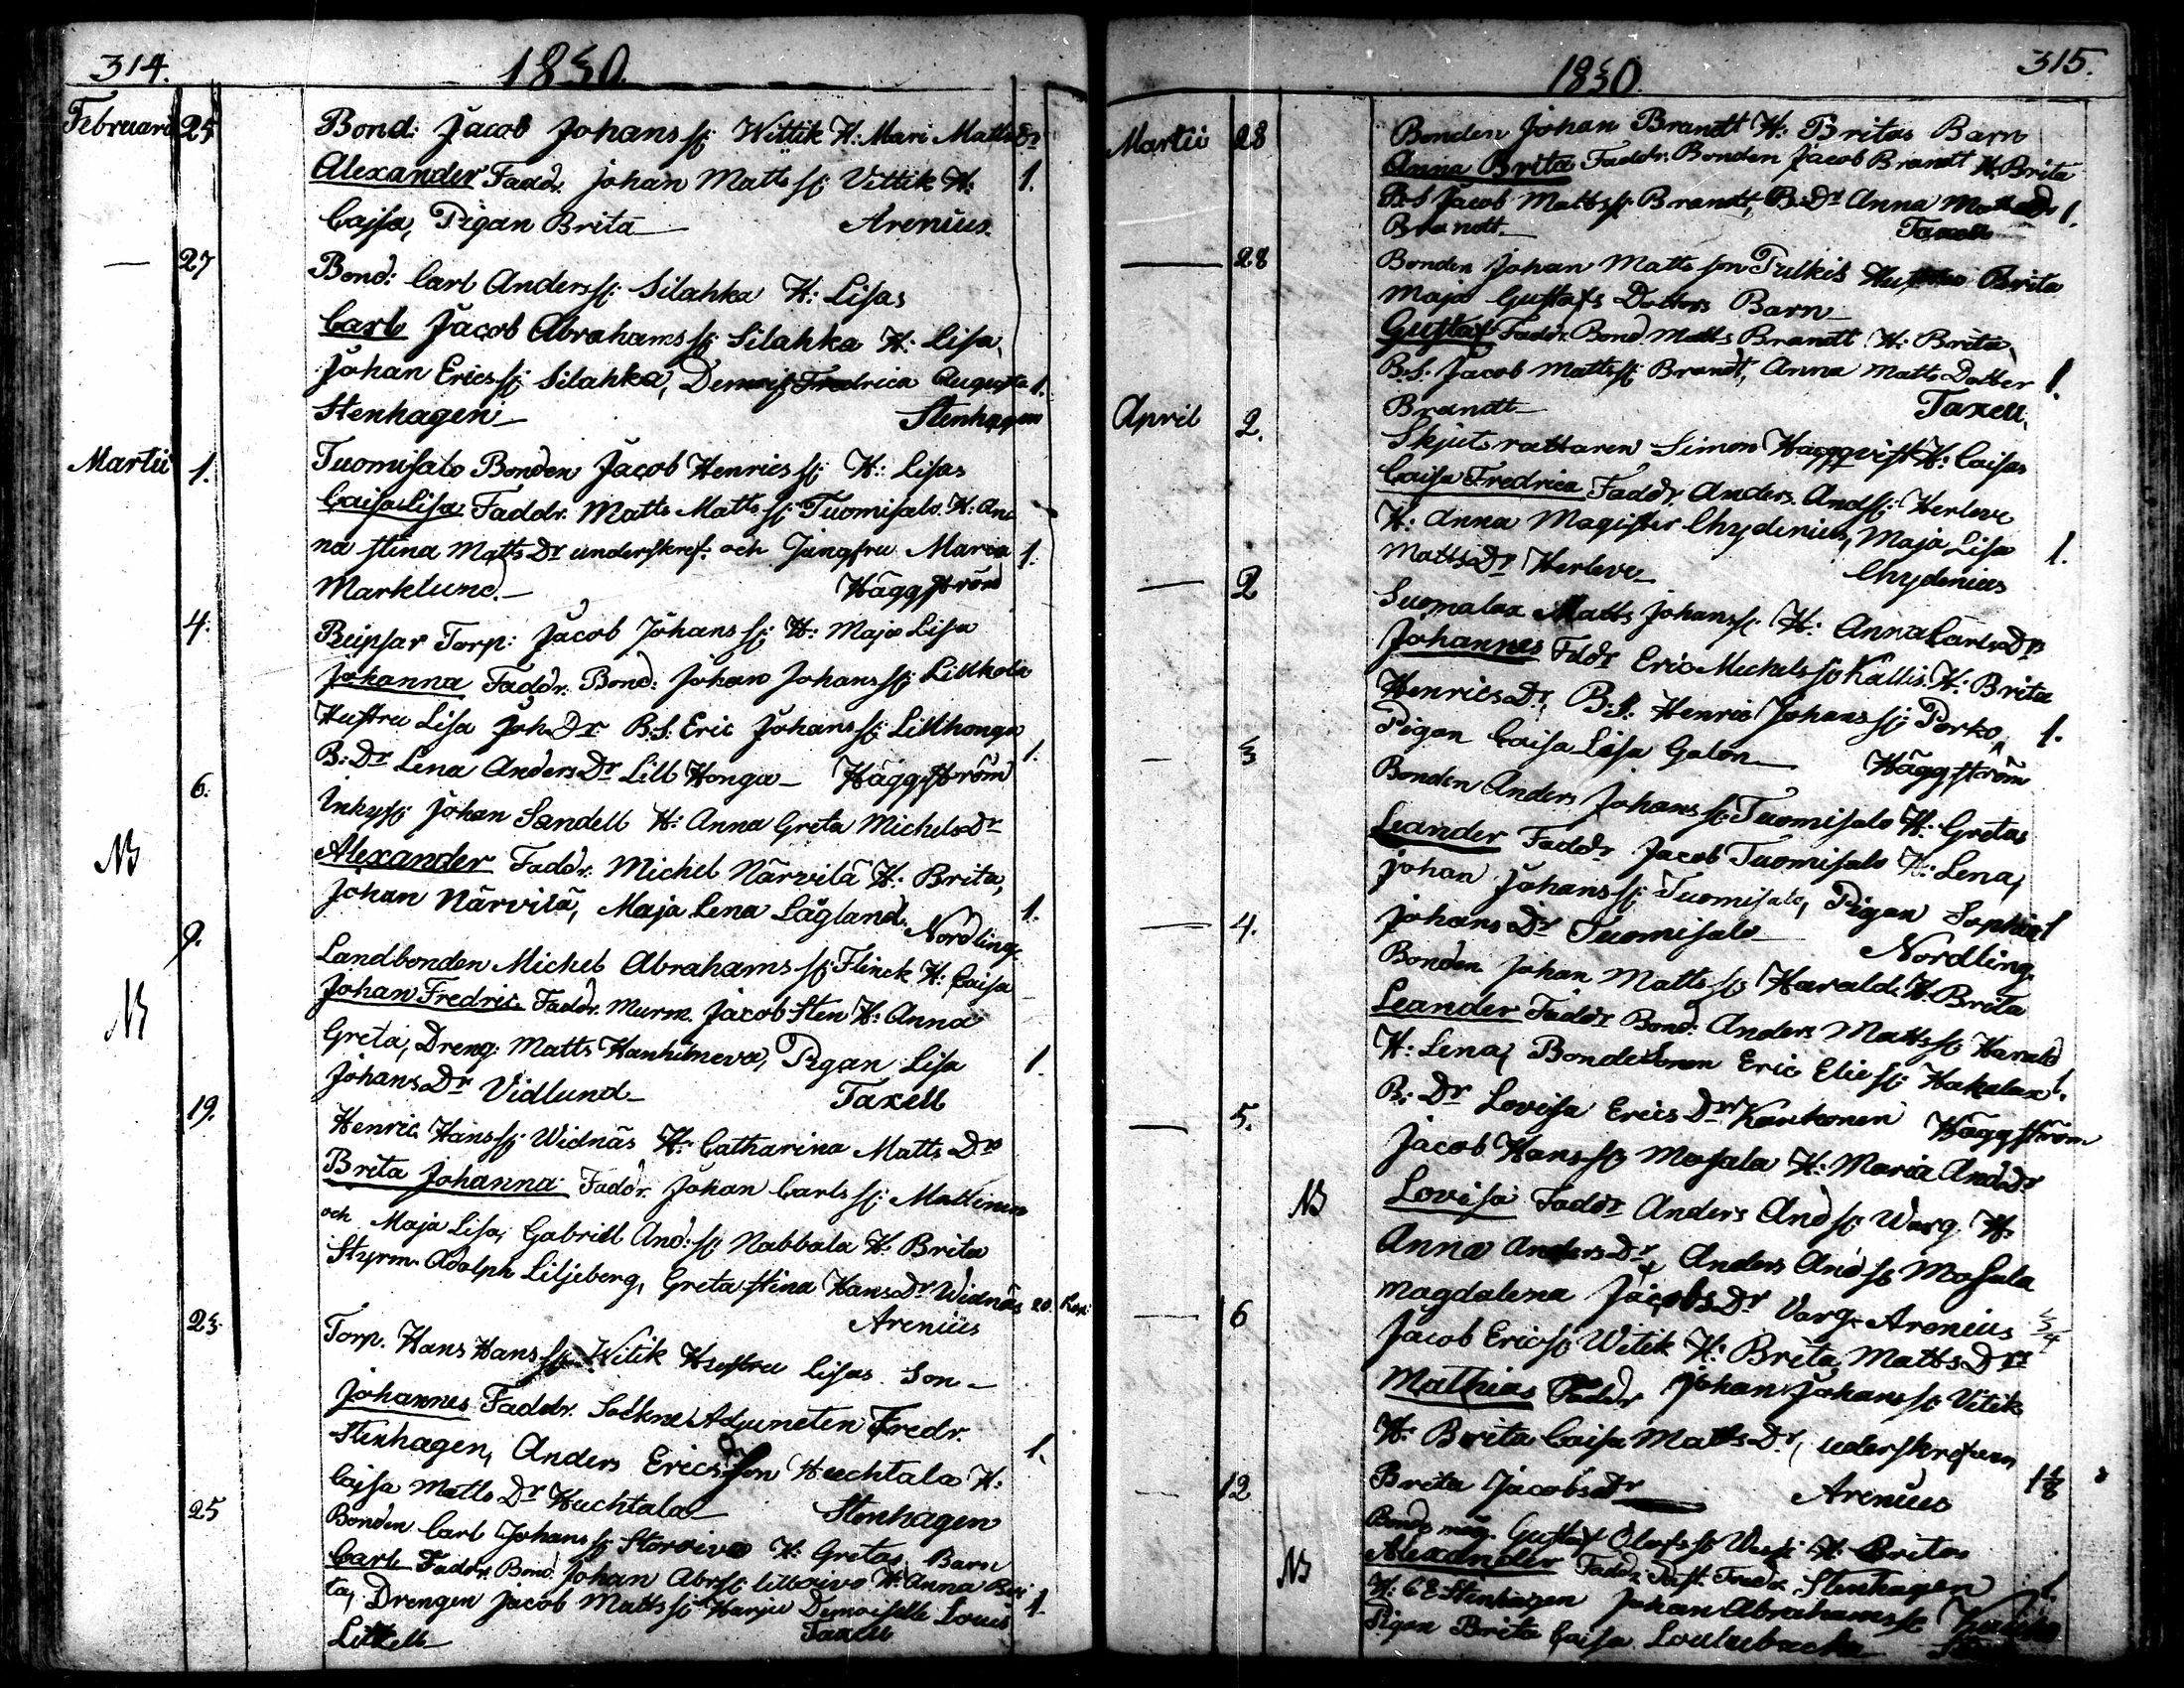 314.
1830.
Februarii 25 Bond: Jacob Johans sf: Wittik H: Mari Matts Dr
Alexander Faddr. Johan Matts sf: Vittik H: 1.
Cajsa, Pigan Brita Arenius.
— 27 Bond: Carl Anders sf: Silahka H: Lisas
Carl Jacob Abrahams sf: Silahka H: Lisa,
Johan Erics sf: Silahka, Demois: Fredrica Augusta 1.
Stenhagen Stenhagen
Martii 1. Tuomisalo Bonden Jacob Henrics sf: H: Lisas
Caisa Lisa Faddr. Matts Matts sf: Tuomisalo H: An
na Stina Matts Dr underskref: och Jungfru Maria 1.
Marklund. Häggström
4. Torp: Jacob Johans sf: H: Maja Lisa
Johanna Faddr. Bond: Johan Johans sf:
Hustru Lisa Joh. Dr B.S. Eric Johans sf: Lillhonga
B: Dr Lena Anders Dr Lill Honga Häggström 1.
6. Inhys: Johan Sandell H: Anna Greta Michels Dr
NB Alexander Faddr. Michel Närvilä H: Brita,
Johan Närvilä, Maja Lena Lågland. Nordling 1.
9. Landbonden Michel Abrahams sf: Flinck H: Caisa
NB Johan Fredric Faddr. Murm. Jacob Sten H: Anna
Greta, Dreng: Matts Kanhitneva, Pigan Lisa 1.
Johans Dr Vidlund Taxell
19. Henric Hans sf: Widnäs H: Catharina Matts Dr
Brita Johanna Faddr. Johan Carls sf:
och Maja Lisa, Gabriell And: sf: Nabbala H: Brita
Styrm. Adolph Liljeberg, Greta Stina Hans Dr Widnäs 20. Kop:
Arenius
23. Torp. Hans Hans sf: Witik Hustru Lisas Son
Johannes Faddr. Sockne Adjuncten Fredr.
Stenhagen, Anders Ericsson Huchtala H: 1.
Cajsa Matts Dr Huchtala Stenhagen
25 Bonden Carl Johans sf: Storrivo H: Gretas Barn
Carl Faddr. Bond: Johan Abr sf: Lillrivo H: Anna Bri
ta, Drengen Jacob Matts sf: Harju Demoiselle Louis 1.
Litzell Taxell
315.
1830.
Martii 28 Bonden Johan Brandt H: Britas Barn
Anna Brita Faddr. Bonden Jacob Brandt H: Brita
B.S Jacob Matts sf: Brandt, B: Dr Anna Matts Dr 1.
Brandt. Taxell
— 28 Bonden Johan Matts son Pulkis Hustrus Brita
Maja Gustafs Dotters Barn
Gustaf Faddr. Bond Matts Brandt H: Brita,
B.S. Jacob Matts sf: Brandt, Anna Matts Dotter 1.
Brandt Taxell.
April 2. Skjutsrattaren Simon Häggqvist H: Caisas
Caisa Fredrica Faddr. Anders And sf: Herleve
H: Anna Magister Chydenius, Maja Lisa 1.
Matts Dr Herleve Chydenius
— 2 Matts Johans sf: H: Anna Carls Dr
Johannes Fddr Eric Michels sf: Kallis H: Brita
Henrics Dr, B:S: Henric Johans sf: Porko, 1.
Pigan Caisa Lisa Galon Häggström
— 3 Bonden Anders Johans sf: Tuomisalo H: Gretas
Leander Faddr Jacob Tuomisalo H: Lena,
Johan Johans sf: Tuomisalo, Pigan Sophia 1
Johans Dr Tuomisalo Nordling.
— 4. Bonden Johan Matts sf: Harald. H: Brita
Leander Faddr Bond: Anders Matts sf: Harald
H: Lena, Bonde Sonen Eric Elie sf: Hakalax 1.
B: Dr Lovisa Erics Dr Karkonen Häggström
— 5. Jacob Hans sf: Mosala H: Maria And: Dr
NB Lovisa Faddr Anders And sf: Warg H:
Anna Anders Dr, Anders And sf: Mosala
Magdalena Jacobs Dr Varg. Arenius 3/4
— 6 Jacob Eric sf: Witik H: Brita Matts Dr
Mathias Faddr Johan Johans sf: Vitik
H: Brita Caisa Matts Dr, underskrefven
Brita Jacobs Dr Arenius 1 1/8
— 12 Bonde måg. Gustaf Olofs sf: H: Britas
NB Alexander Faddr Past: Fredr. Stenhagen 1
H: C E Stenhagen Johan Abrahams sf:
Pigan Brita Caisa